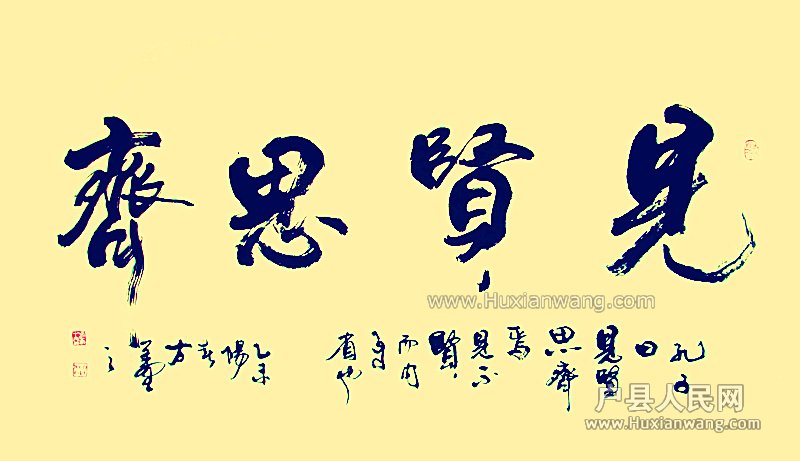 見賢思齊
孔子
曰
見賢
思齊
焉
見不
賢
而内
自
省也
乙未
陽春
方
之
www.Huxianwang.com
户县人民网
www.Huxianwang.com